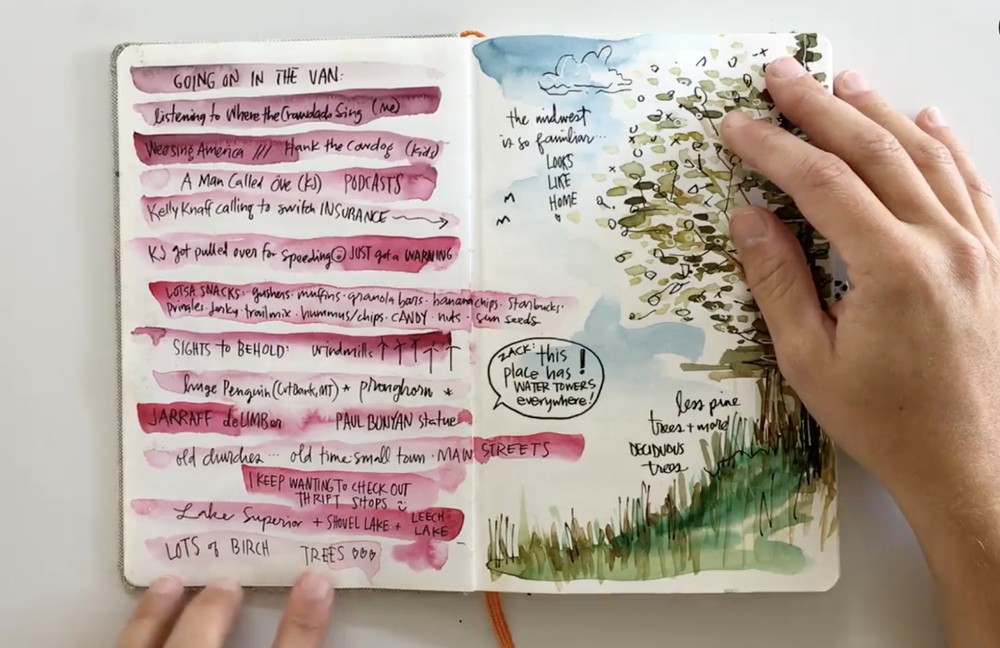 GOING ON IN THE VAN:
listening to Where the Crawdads Sing (me)
Weesing America /// Hank the Cowdog (kids)
A Man Called Ove (KJ) PODCASTS
Kelly Knaff calling to switch INSURANCE
KJ got pulled over for Speeding JUST got a WARNING
LOTSA SNACKS: gushers · muffins · granola bars · banana chips · Starbucks ·
Pringles · Jerky · trail mix · hummus/chips · CANDY · nuts · sun seeds
SIGHTS to BEHOLD: windmills
huge Penguin (CutBank, MT) * pronghorn *
JARRAFF deLIMBer PAUL BUNYAN Statue
old churches ... old time small town · MAIN STREETS
I KEEP WANTING TO CHECK OUT
THRIFT SHOPS
Lake Superior + SHOVEL LAKE + LEECH
LAKE
LOTS of BIRCH TREES
the midwest
is so familiar...
LOOKS
LIKE
HOME
ZACK: this
place has !
WATER TOWERS
everywhere!
less pine
trees + more
DECIDUOUS
trees